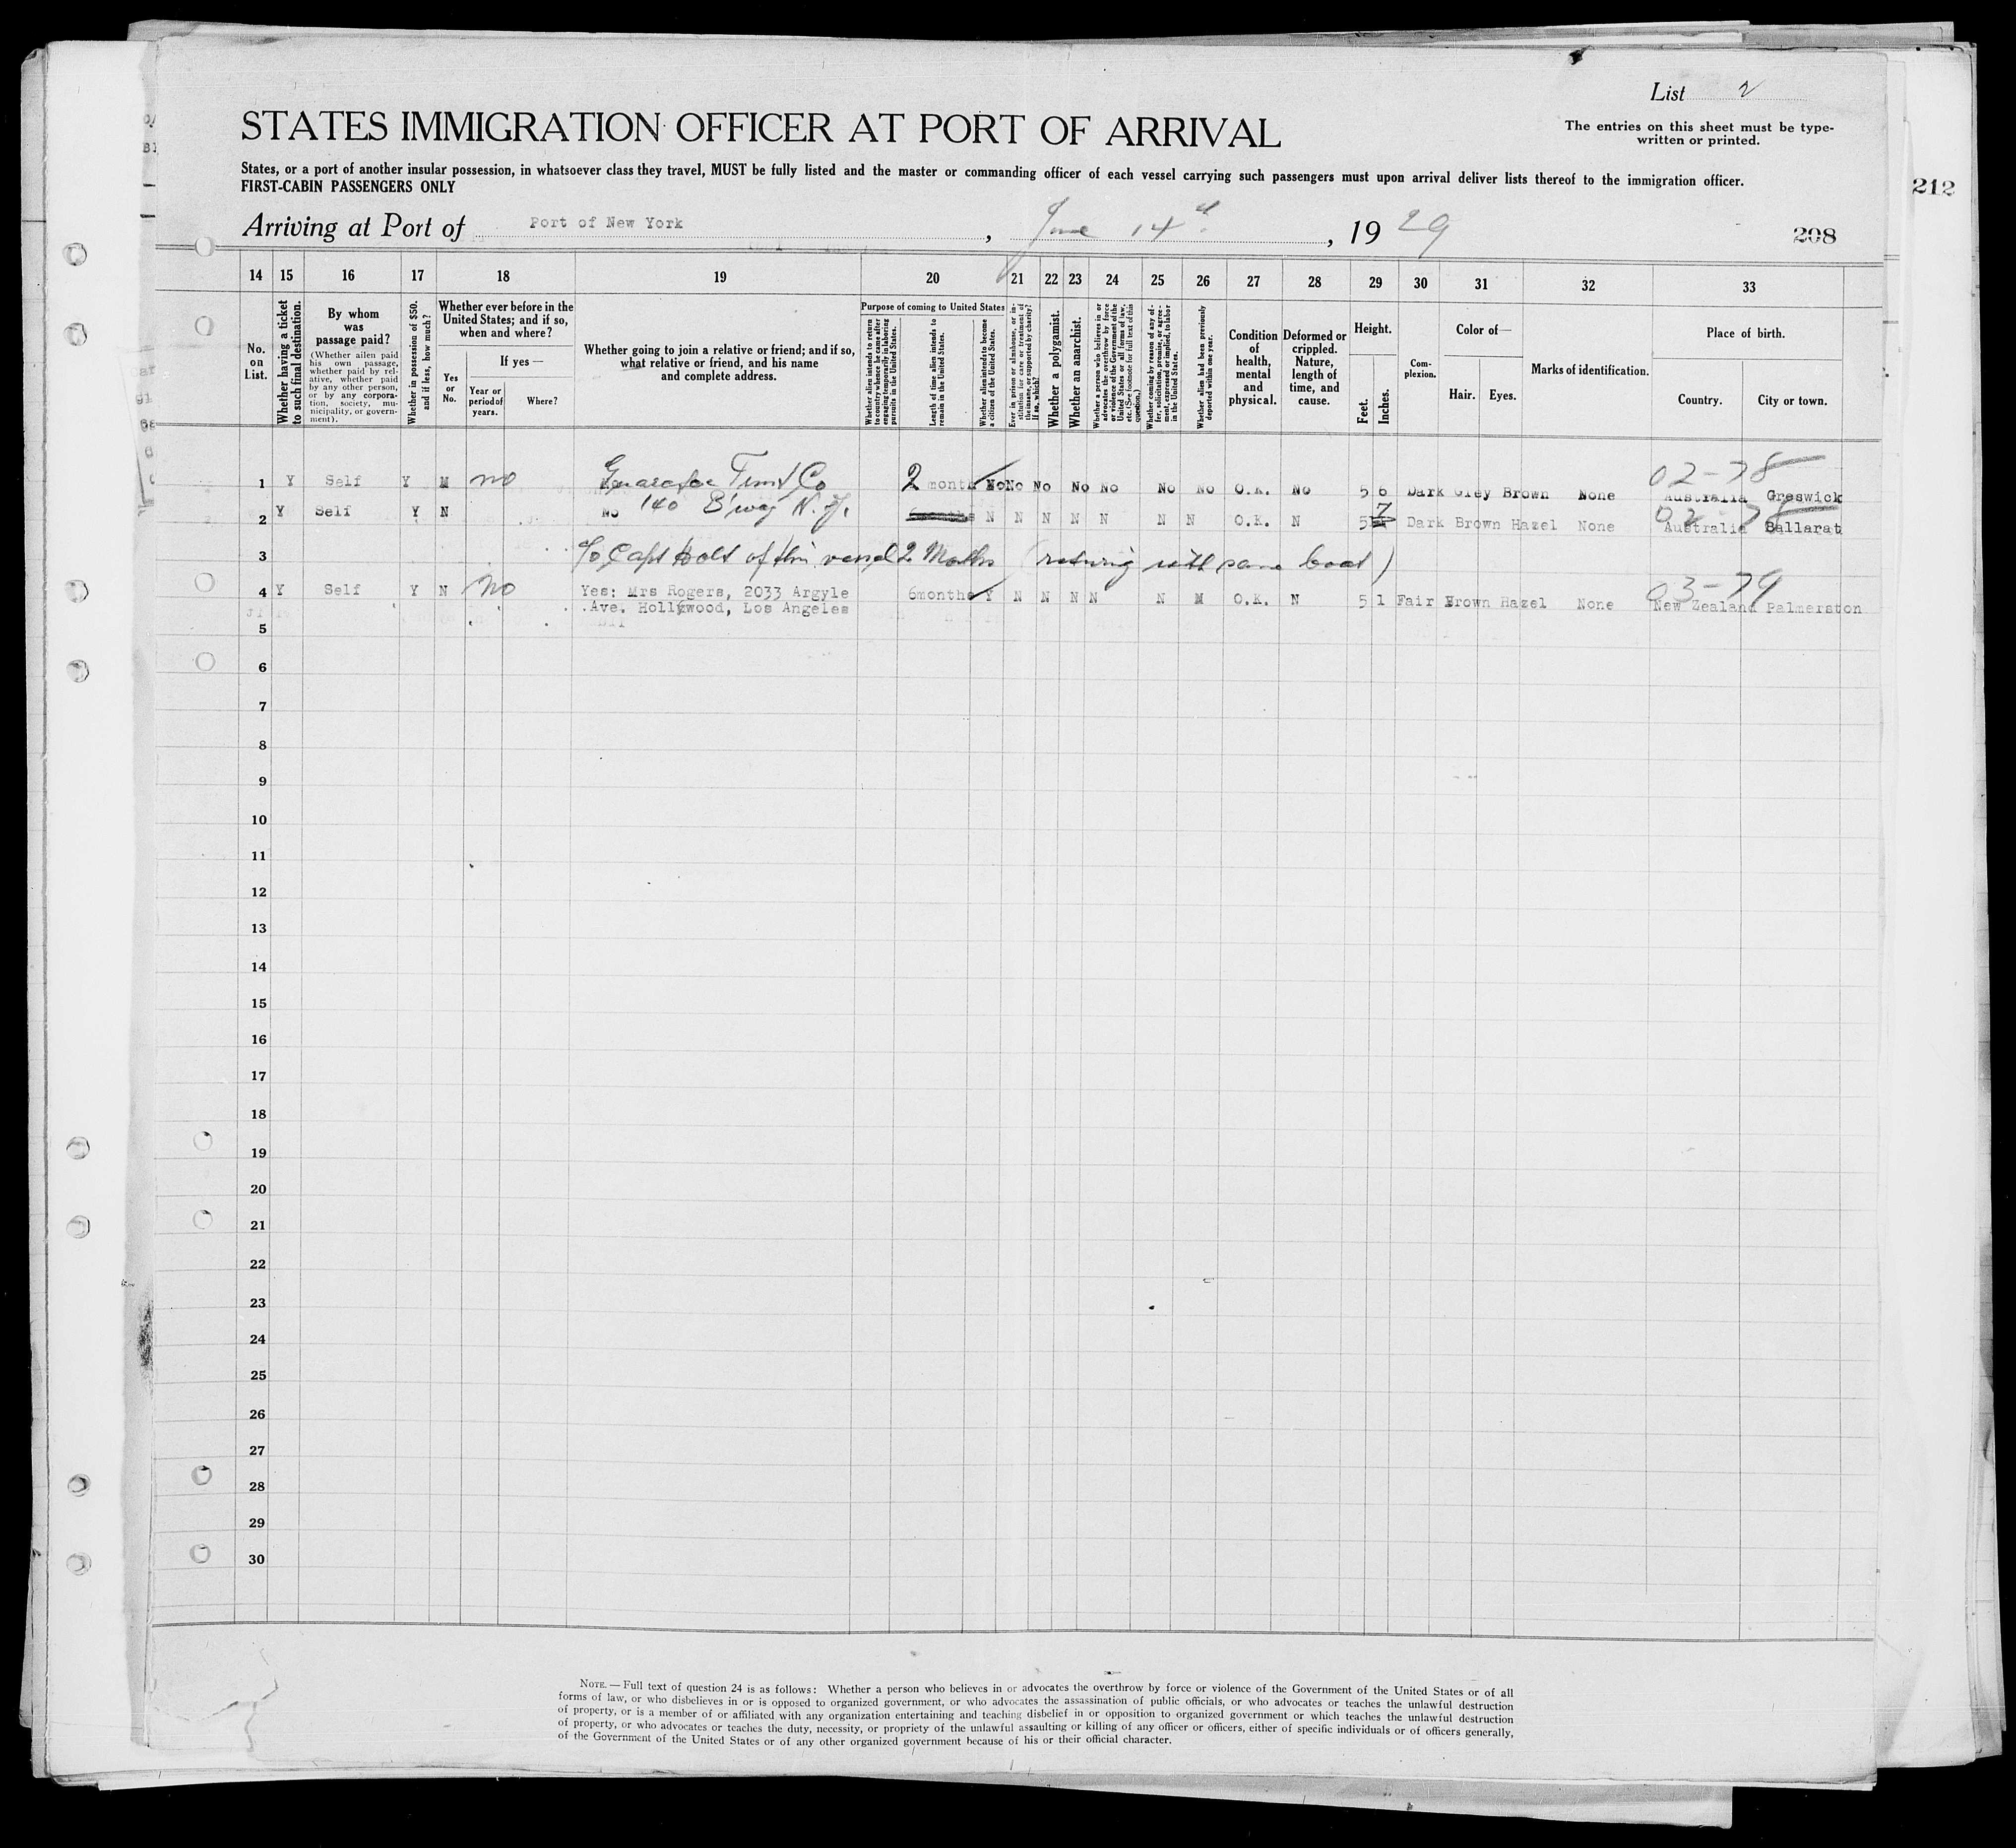 List 2
STATES IMMIGRATION OFFICER AT PORT OF ARRIVAL
The entries on this sheet must be type-
written or printed.
States, or a port of another insular possession, in whatsoever class they travel, MUST be fully listed and the master or commanding officer of each vessel carrying such passengers must upon arrival deliver lists thereof to the immigration officer.
FIRST-CABIN PASSENGERS ONLY
212
Arriving at Port of Port of New York, June 14th, 1929
208
14 15 16 17 18 19 20 21 22 23 24 25 26 27 28 29 30 31 32 33
No. on List.
Whether having a ticket to such final destination.
By whom was passage paid?
(Whether alien paid his own passage, whether paid by relative, whether paid by any other person, or by any corporation, society, municipality, or government).
Whether in possession of $50. and if less, how much?
Whether ever before in the United States; and if so, when and where?
Yes or No.
If yes—
Year or period of years.
Where?
Whether going to join a relative or friend; and if so, what relative or friend, and his name and complete address.
Purpose of coming to United States
Whether alien intends to return to country whence he came after engaging temporarily in laboring pursuits in the United States.
Length of time alien intends to remain in the United States.
Whether alien intends to become a citizen of the United States.
Ever in prison or almshouse, or institution for care or treatment of the insane, or supported by charity? If so, which?
Whether a polygamist.
Whether an anarchist.
Whether a person who believes in or advocates the overthrow by force or violence of the Government of the United States or all forms of law, etc. (See footnote for full text of this question.)
Whether coming by reason of any offer, solicitation, promise, or agreement, expressed or implied, to labor in the United States.
Whether alien had been previously deported within one year.
Condition of health, mental and physical.
Deformed or crippled. Nature, length of time, and cause.
Height.
Feet. Inches.
Complexion.
Color of—
Hair. Eyes.
Marks of identification.
Place of birth.
Country. City or town.
02-78
1 Y Self Y M no Guarantee Trust Co 2 month No No No No No No No O.K. No 5 6 Dark Grey Brown None Australia Greswick
140 B'way N.Y.
02-78
2 Y Self Y N No N N N N N N N O.K. N 5 7 Dark Brown Hazel None Australia Ballarat
3 To Capt Holt of this vessel 2 Months (returning with same boat)
03-79
4 Y Self Y N No Yes: Mrs Rogers, 2033 Argyle 6months Y N N N N N M O.K. N 5 1 Fair Brown Hazel None New Zealand Palmerston
Ave. Hollywood, Los Angeles
5
6
7
8
9
10
11
12
13
14
15
16
17
18
19
20
21
22
23
24
25
26
27
28
29
30
NOTE.—Full text of question 24 is as follows: Whether a person who believes in or advocates the overthrow by force or violence of the Government of the United States or of all
forms of law, or who disbelieves in or is opposed to organized government, or who advocates the assassination of public officials, or who advocates or teaches the unlawful destruction
of property, or is a member of or affiliated with any organization entertaining and teaching disbelief in or opposition to organized government or which teaches the unlawful destruction
of property, or who advocates or teaches the duty, necessity, or propriety of the unlawful assaulting or killing of any officer or officers, either of specific individuals or of officers generally,
of the Government of the United States or of any other organized government because of his or their official character.